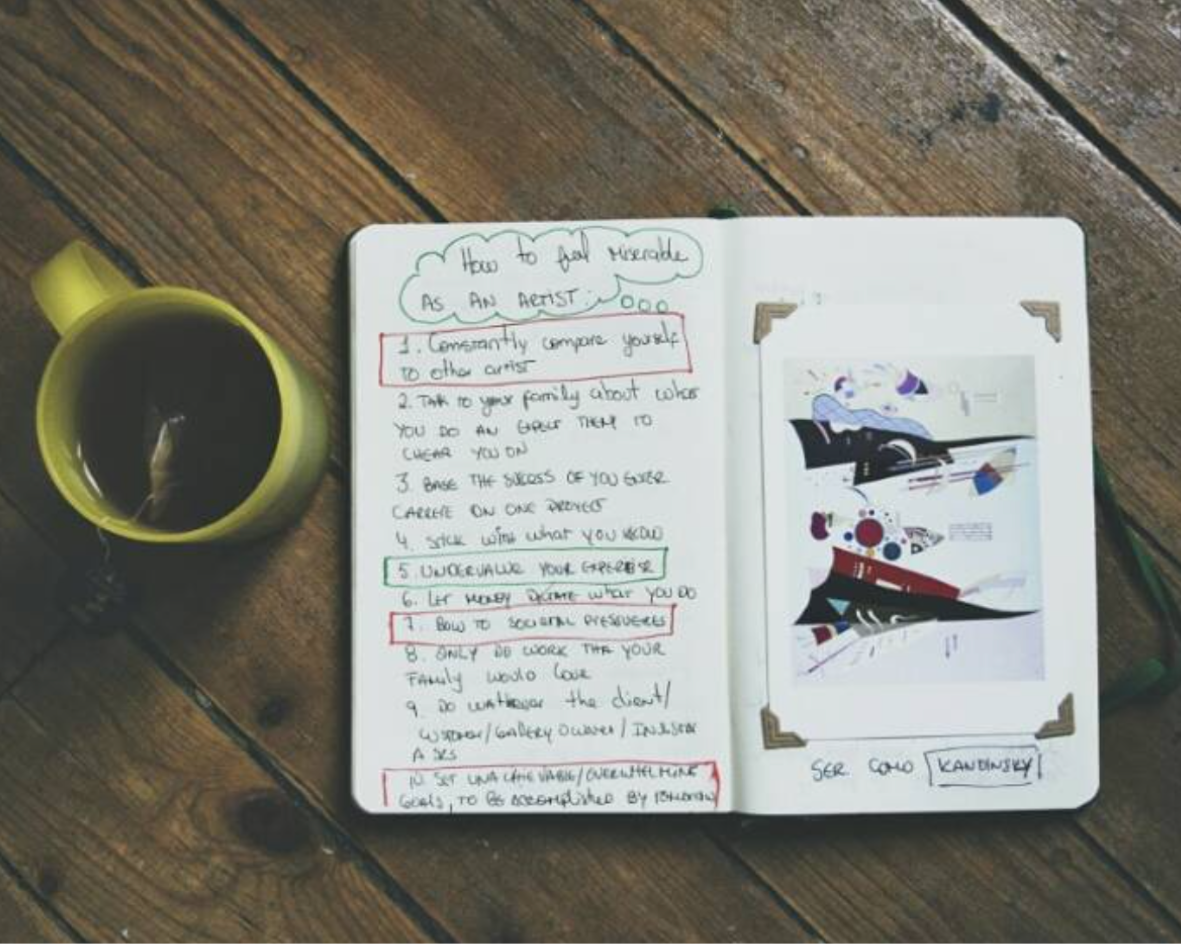 How to feel Miserable
AS AN ARTIST:
1. Constantly compare yourself
to other artist
2. TALK TO your family about what
YOU DO AN EXPECT THEM TO
CHEAR YOU ON
3. BASE THE SUCESS OF YOU ENTIRE
CARREIE ON ONE PROYECT
4. STICK WITH what YOU KNOW
5. UNDERVALUE YOUR EXPERTISE
6. LET MONEY DICTATE what YOU DO
7. BOW TO SOCIETAL PRESSURES
8. ONLY DO WORK THAT YOUR
FAMILY WOULD LOVE
9. DO whatever the client/
/GALLERY OWNER/
10. SET UNACHIEVABLE/OVERWHELMING
GOALS, TO BE accomplished BY TOMORROW
SER COMO KANDINSKY